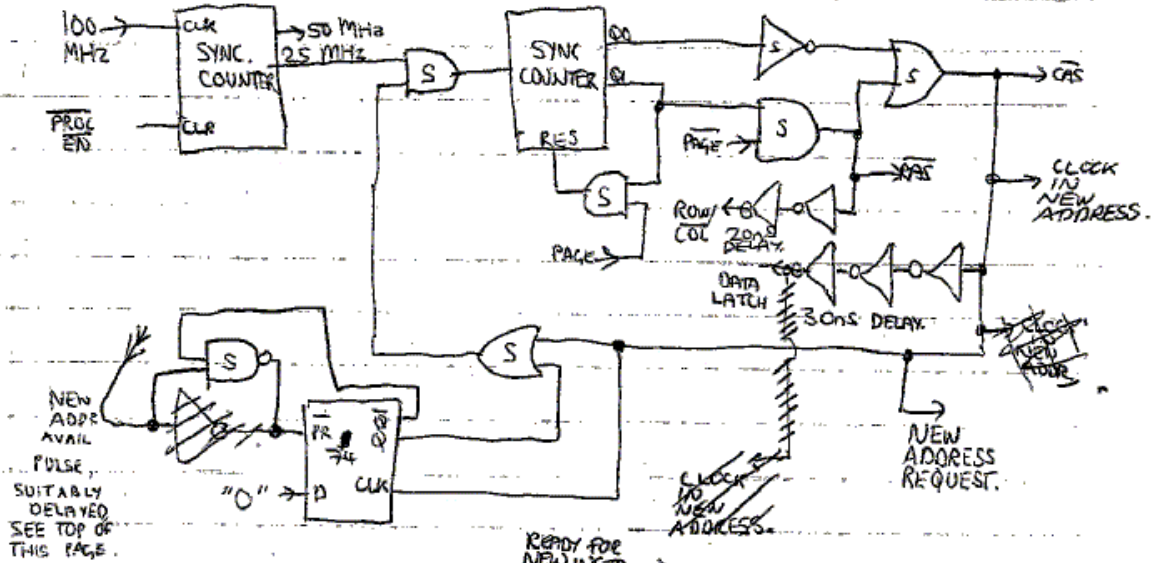 100
MHz
CLK
SYNC.
COUNTER
CLR
PROC
EN
50 MHz
25 MHz
S
SYNC
COUNTER
Q0
Q1
RES
S
S
CAS
S
PAGE
S
RAS
CLOCK
IN
NEW
ADDRESS.
ROW/
COL
20nS
DELAY.
PAGE
DATA
LATCH
30nS DELAY.
CLOCK
NEW
ADDR
S
S
NEW
ADDR
AVAIL
PULSE,
SUITABLY
DELAYED
SEE TOP OF
THIS PAGE.
PR
74
Q
"0"
D
CLK
NEW
ADDRESS
REQUEST.
CLOCK
IN
NEW
ADDRESS.
READY FOR